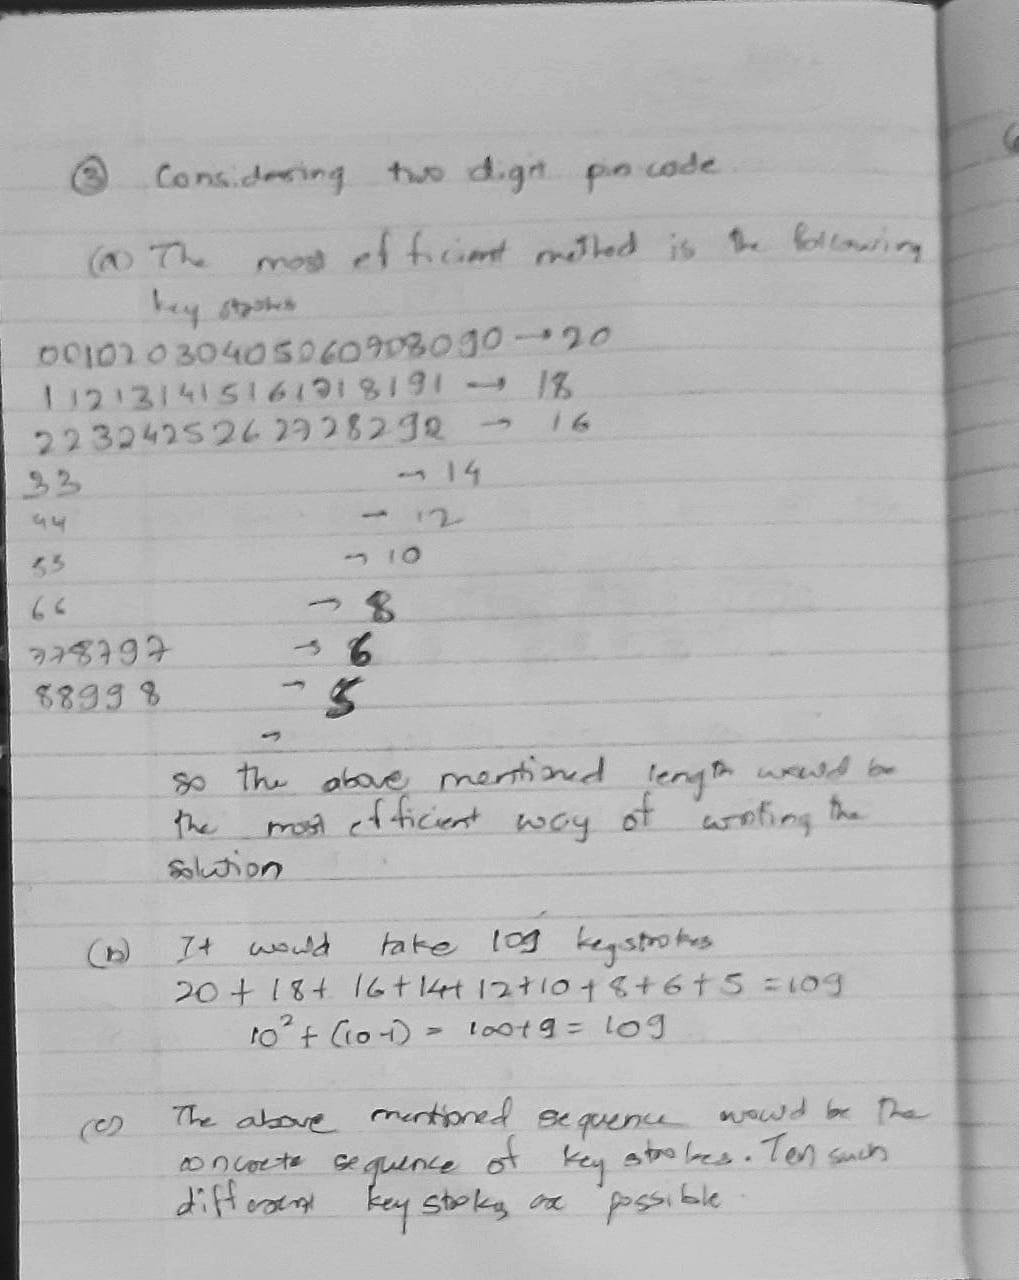 ③ Considering two digit pin code.
(a) The most efficient method is the following
key strokes
00102030405060908090 → 20
112131415161718191 → 18
2232425262728292 → 16
33 → 14
44 → 12
55 → 10
66 → 8
778797 → 6
88998 → 5
→
so the above mentioned length would be
the most efficient way of writing the
solution
(b) It would take 109 keystrokes
20 + 18 + 16 + 14 + 12 + 10 + 8 + 6 + 5 = 109
10² + (10-1) = 100+9 = 109
(c) The above mentioned sequence would be the
concrete sequence of key strokes. Ten such
different key stokes are possible.